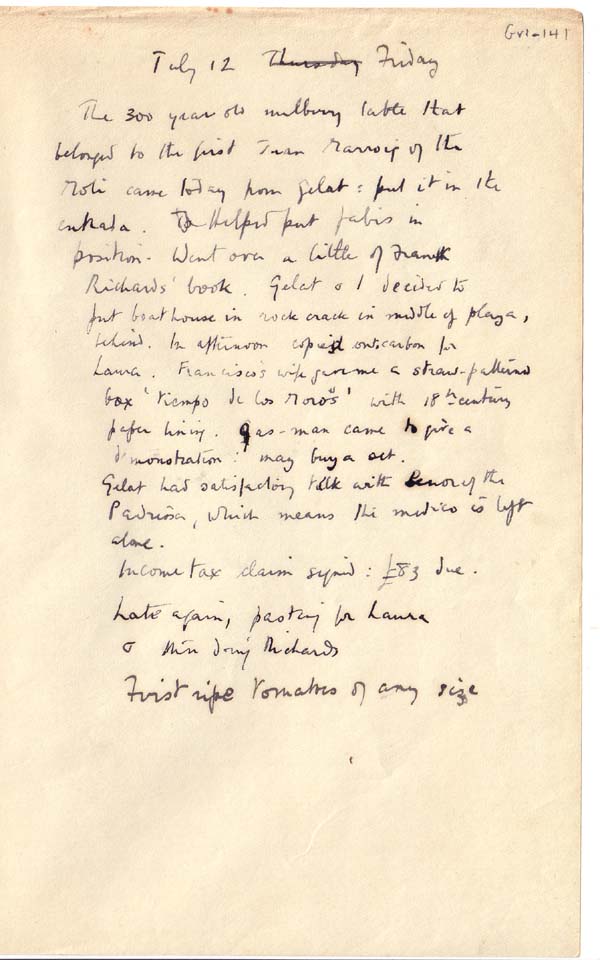 Gri-141
July 12 Thursday Friday
The 300 year old mulberry table that
belonged to the first Juan Marroig of the
Moli came today from Gelat: put it in the
entrada. Helped put fabis in
position. Went over a little of Frank
Richards' book. Gelat & I decided to
put boathouse in rock crack in middle of playa,
behind. In afternoon copied out carbon for
Laura. Francisco's wife gave me a straw-patterned
box 'tiempo de los Moros' with 18th century
paper lining. Gas-man came to give a
demonstration: may buy a set.
Gelat had satisfactory talk with Senor of the
Padrissa, which means the medico is left
alone.
Income tax claim signed: £83 due.
Late again, pasting for Laura
& then doing Richards
First ripe tomatoes of any size